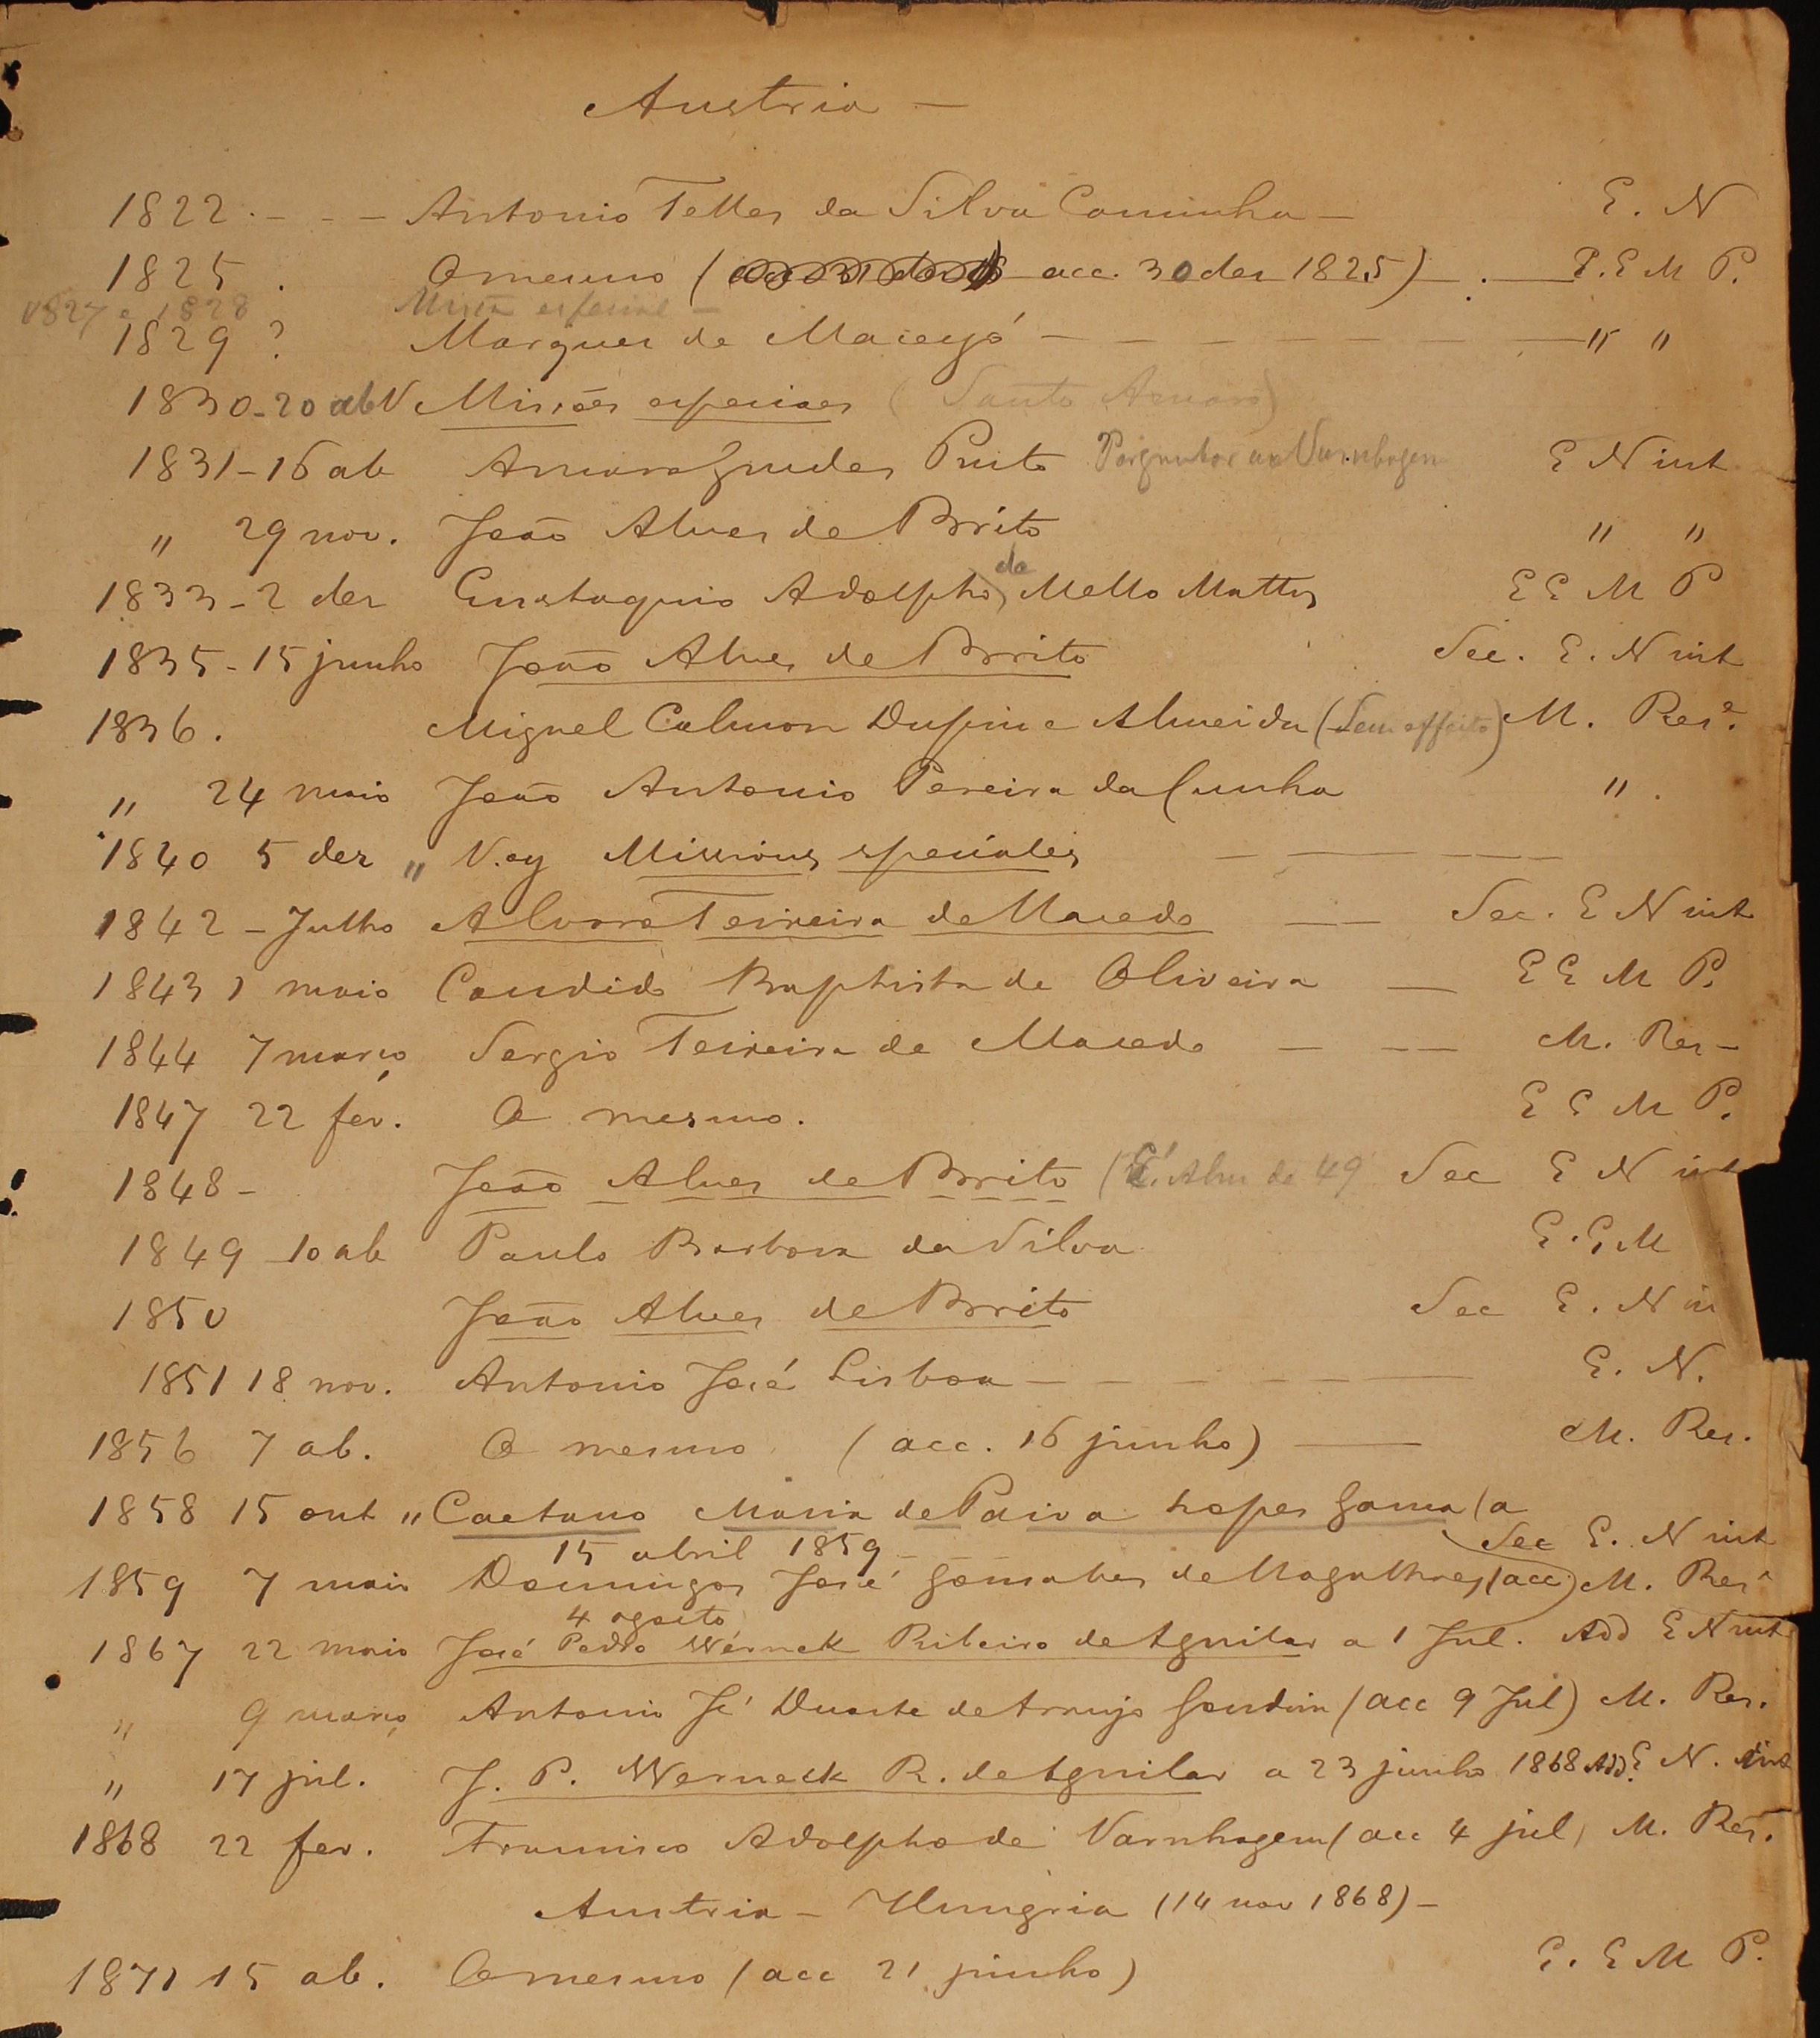 Austria —
1822 . - - - Antonio Telles da Silva Caminha — E. N
1825 . O mesmo ( acc. 30 dez 1825) . — E. E M P.
1827 e 1828 Missão especial —
1829 ? Marquez de Maceyó — — — — — — — — " "
1830 - 20 ab V Missões especiaes (Santo Amaro)
1831 - 16 ab Amaro Guedes Pinto Perguntar ao Varnhagen E N int
" 29 nov. João Alves de Brito " "
de
1833 - 2 dez Eustaquio Adolpho, Mello Mattos E E M P
1835 - 15 junho João Alves de Brito Sec. E. N int
1836 . Miguel Calmon Dupin e Almeida (Sem effeito) M. Rese.
" 24 maio João Antonio Pereira da Cunha " .
1840 5 dez " V. ey Missions speciales — — — — —
1842 - Julho Alvaro Teixeira de Macedo — — Sec. E N int
1843 1 maio Candido Baptista de Oliveira — E E M P.
1844 7 março Sergio Teixeira de Macedo — — — M. Res —
1847 22 fev. O mesmo. E E M P.
1848 - João Alves de Brito ( Alm de 49 Sec E N int
1849 - 10 ab Paulo Barboza da Silva E. E M
1850 João Alves de Brito Sec E. N in
1851 18 nov. Antonio José Lisboa — — — — — — E. N.
1856 7 ab. O mesmo (acc. 16 junho) — M. Res.
1858 15 out " Caetano Maria de Paiva Lopes Gama (a
15 abril 1859 — Sec E. N int
1859 7 maio Domingos José Gonsalves de Magalhaes (acc) M. Rese
4 agosto
1867 22 maio José Pedro Werneck Ribeiro de Aguilar a 1 Jul. Add E N int
" 9 março Antonio Jé Duarte de Araujo Gondim (acc 9 Jul) M. Res.
" 17 jul. J. P. Werneck R. de Aguilar a 23 junho 1868 Add. E N. int
1868 22 fev. Francisco Adolpho de Varnhagem (acc 4 jul, M. Res.
Austria — Hungria (14 nov 1868) —
1871 15 ab. O mesmo (acc 21 junho) E. E M P.